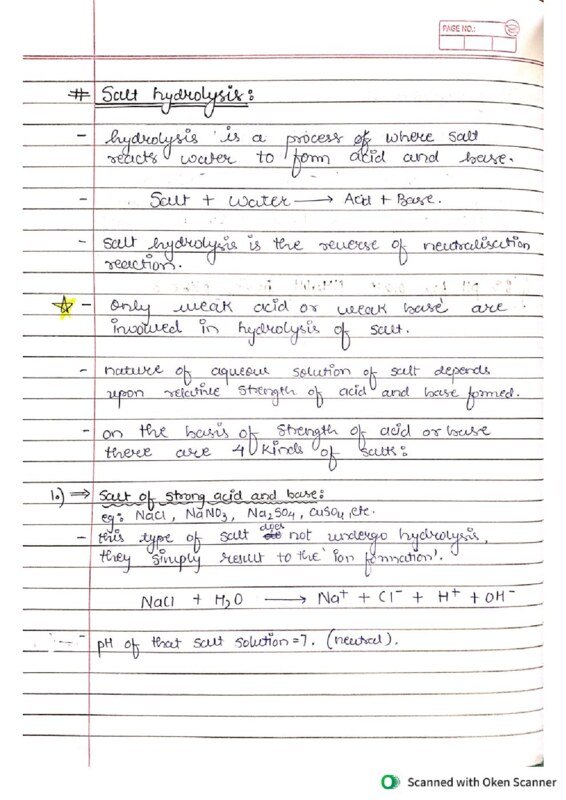 PAGE NO.:
# Salt hydrolysis:
- hydrolysis is a process of where salt
reacts water to form acid and base.
- Salt + Water ⟶ Acid + Base.
- salt hydrolysis is the reverse of neutralisation
reaction.
☆ - only weak acid or weak base are
involved in hydrolysis of salt.
- nature of aqueous solution of salt depends
upon relative strength of acid and base formed.
- on the basis of strength of acid or base
there are 4 kinds of salts:
1.) ⇒ Salt of strong acid and base:
eg: NaCl, NaNO₃, Na₂SO₄, CuSO₄, etc.
- this type of salt does not undergo hydrolysis,
they simply result to the 'ion formation'.
NaCl + H₂O ⟶ Na⁺ + Cl⁻ + H⁺ + OH⁻
- pH of that salt solution = 7. (neutral).
Scanned with Oken Scanner